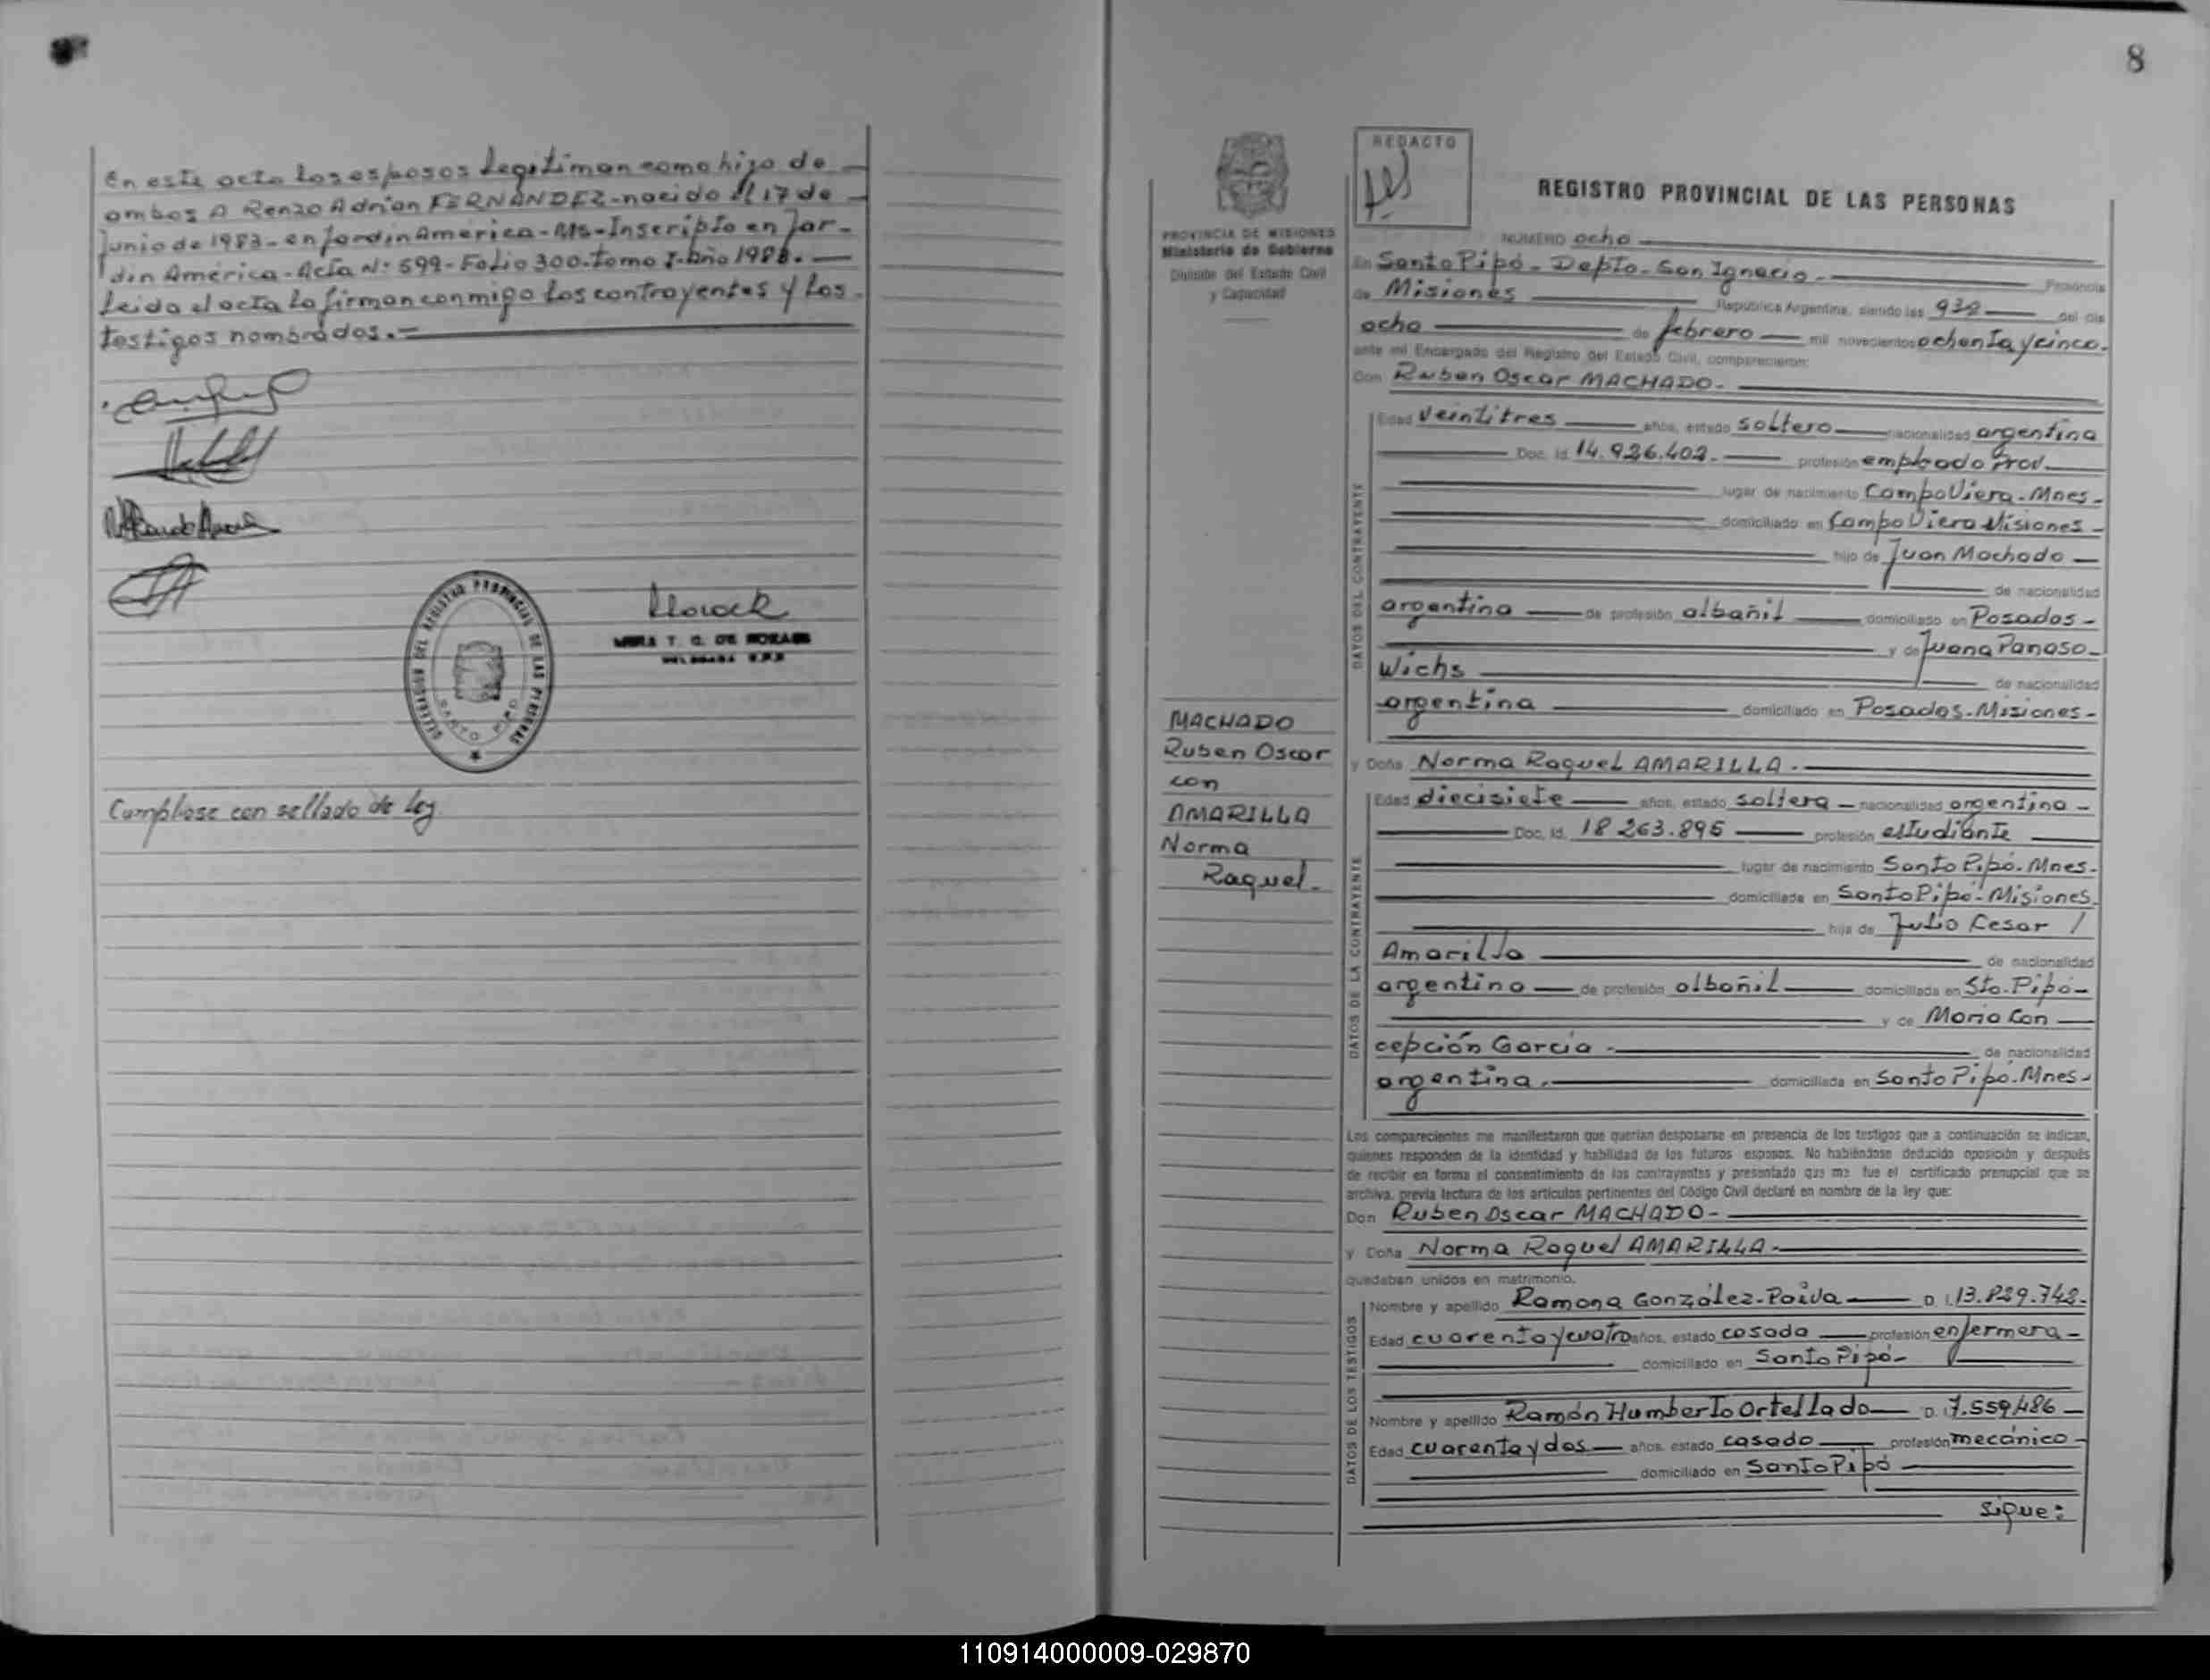 En este acto los esposos legitiman como hijo de
ambos A Renzo Adrian FERNANDEZ-nacido el 17 de
junio de 1983-en Jardin America-Ms-Inscripto en Jar-
din América-Acta Nº 599-Folio 300-tomo I-Año 1988.-
Leida el acta la firman conmigo los contrayentes y los
testigos nombrados.-
DELEGACION DEL REGISTRO PROVINCIAL DE LAS PERSONAS
SANTO PIPO
T. G. DE MORAES
Cumpliose con sellado de ley.
8
PROVINCIA DE MISIONES
Ministerio de Gobierno
División del Estado Civil
y Capacidad
MACHADO
Ruben Oscar
con
AMARILLA
Norma
Raquel-
REDACTO
REGISTRO PROVINCIAL DE LAS PERSONAS
NUMERO ocho
En Santo Pipó-Depto-San Ignacio- Provincia
de Misiones República Argentina, siendo las 930 del día
ocho de febrero mil novecientos ochenta y cinco.
ante mí Encargado del Registro del Estado Civil, comparecieron:
Don Ruben Oscar MACHADO-
DATOS DEL CONTRAYENTE
Edad veintitres años, estado soltero nacionalidad argentina
Doc. Id. 14.926.402- profesión empleado Prov.
lugar de nacimiento Campo Viera-Mnes-
domiciliado en Campo Viera Misiones-
hijo de Juan Machado
de nacionalidad
argentina de profesión albañil domiciliado en Posadas-
y de Juana Panaso
Wichs de nacionalidad
argentina domiciliado en Posadas-Misiones-
y Doña Norma Raquel AMARILLA-
DATOS DE LA CONTRAYENTE
Edad diecisiete años, estado soltera nacionalidad argentina-
Doc. Id. 18 263.895 profesión estudiante
lugar de nacimiento Santo Pipó-Mnes-
domiciliada en Santo Pipó-Misiones
hija de Julio Cesar /
Amarilla de nacionalidad
argentino de profesión albañil domiciliado en Sto-Pipó-
y de Maria Con
cepción Garcia- de nacionalidad
argentina. domiciliada en Santo Pipó-Mnes-
Los comparecientes me manifestaron que querían desposarse en presencia de los testigos que a continuación se indican,
quienes responden de la identidad y habilidad de los futuros esposos. No habiéndose deducido oposición y después
de recibir en forma el consentimiento de los contrayentes y presentado que me fue el certificado prenupcial que se
archiva, previa lectura de los artículos pertinentes del Código Civil declaré en nombre de la ley que:
Don Ruben Oscar MACHADO-
y Doña Norma Raquel AMARILLA-
quedaban unidos en matrimonio.
DATOS DE LOS TESTIGOS
Nombre y apellido Ramona González-Paiva D. I. 13.829.742-
Edad cuarenta y cuatro años, estado casada profesión enfermera-
domiciliado en Santo Pipó-
Nombre y apellido Ramón Humberto Ortellado D. I. 7.559.486
Edad cuarenta y dos años, estado casado profesión mecánico-
domiciliado en Santo Pipó
Sigue:
110914000009-029870